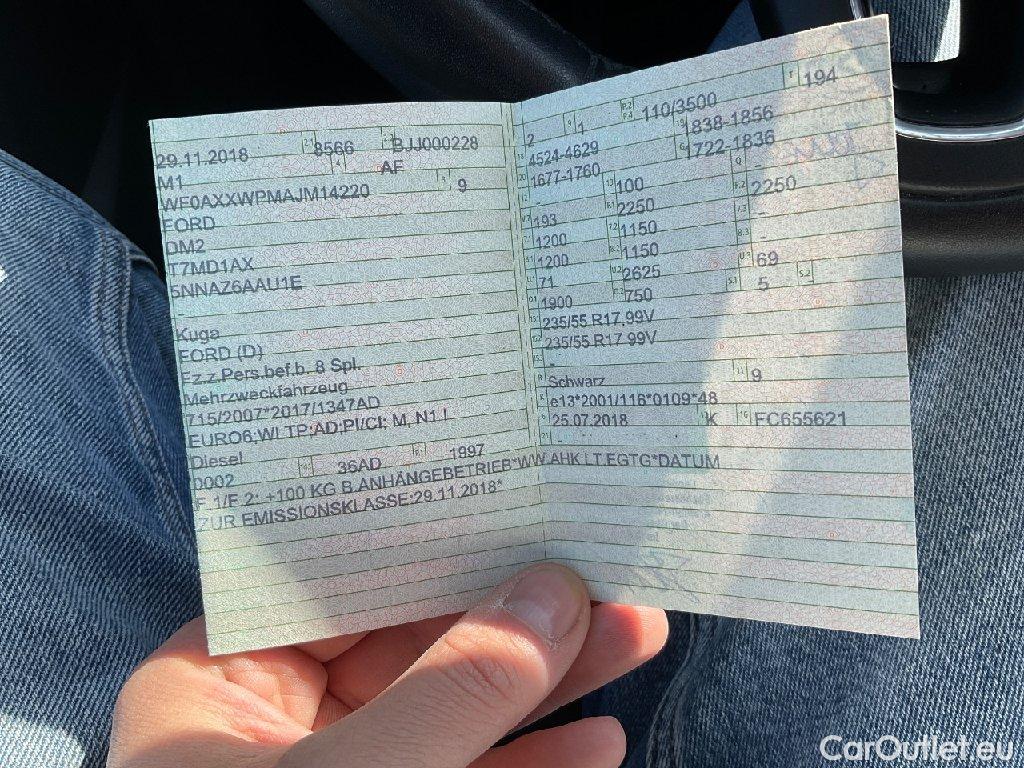 29.11.2018 8566 BJJ000228
M1 AF
WF0AXXWPMAJM14220 9
FORD
DM2
T7MD1AX
5NNAZ6AAU1E
-
Kuga
FORD (D)
Fz.z.Pers.bef.b. 8 Spl.
Mehrzweckfahrzeug
715/2007*2017/1347AD
EURO6;WLTP;AD;PI/CI; M, N1 I
Diesel
0002 36AD 1997
F.1/F.2: +100 KG B.ANHÄNGEBETRIEB*WW.AHK LT.EGTG*DATUM
ZUR EMISSIONSKLASSE:29.11.2018*
2 1 110/3500 194
4524-4629 1838-1856
1677-1760 1722-1836
100
193 2250 2250
1200 1150 -
1200 1150 -
71 2625 69
1900 750 5
235/55 R17,99V
235/55 R17 99V
-
Schwarz 9
e13*2001/116*0109*48
25.07.2018 K FC655621
CarOutlet.eu